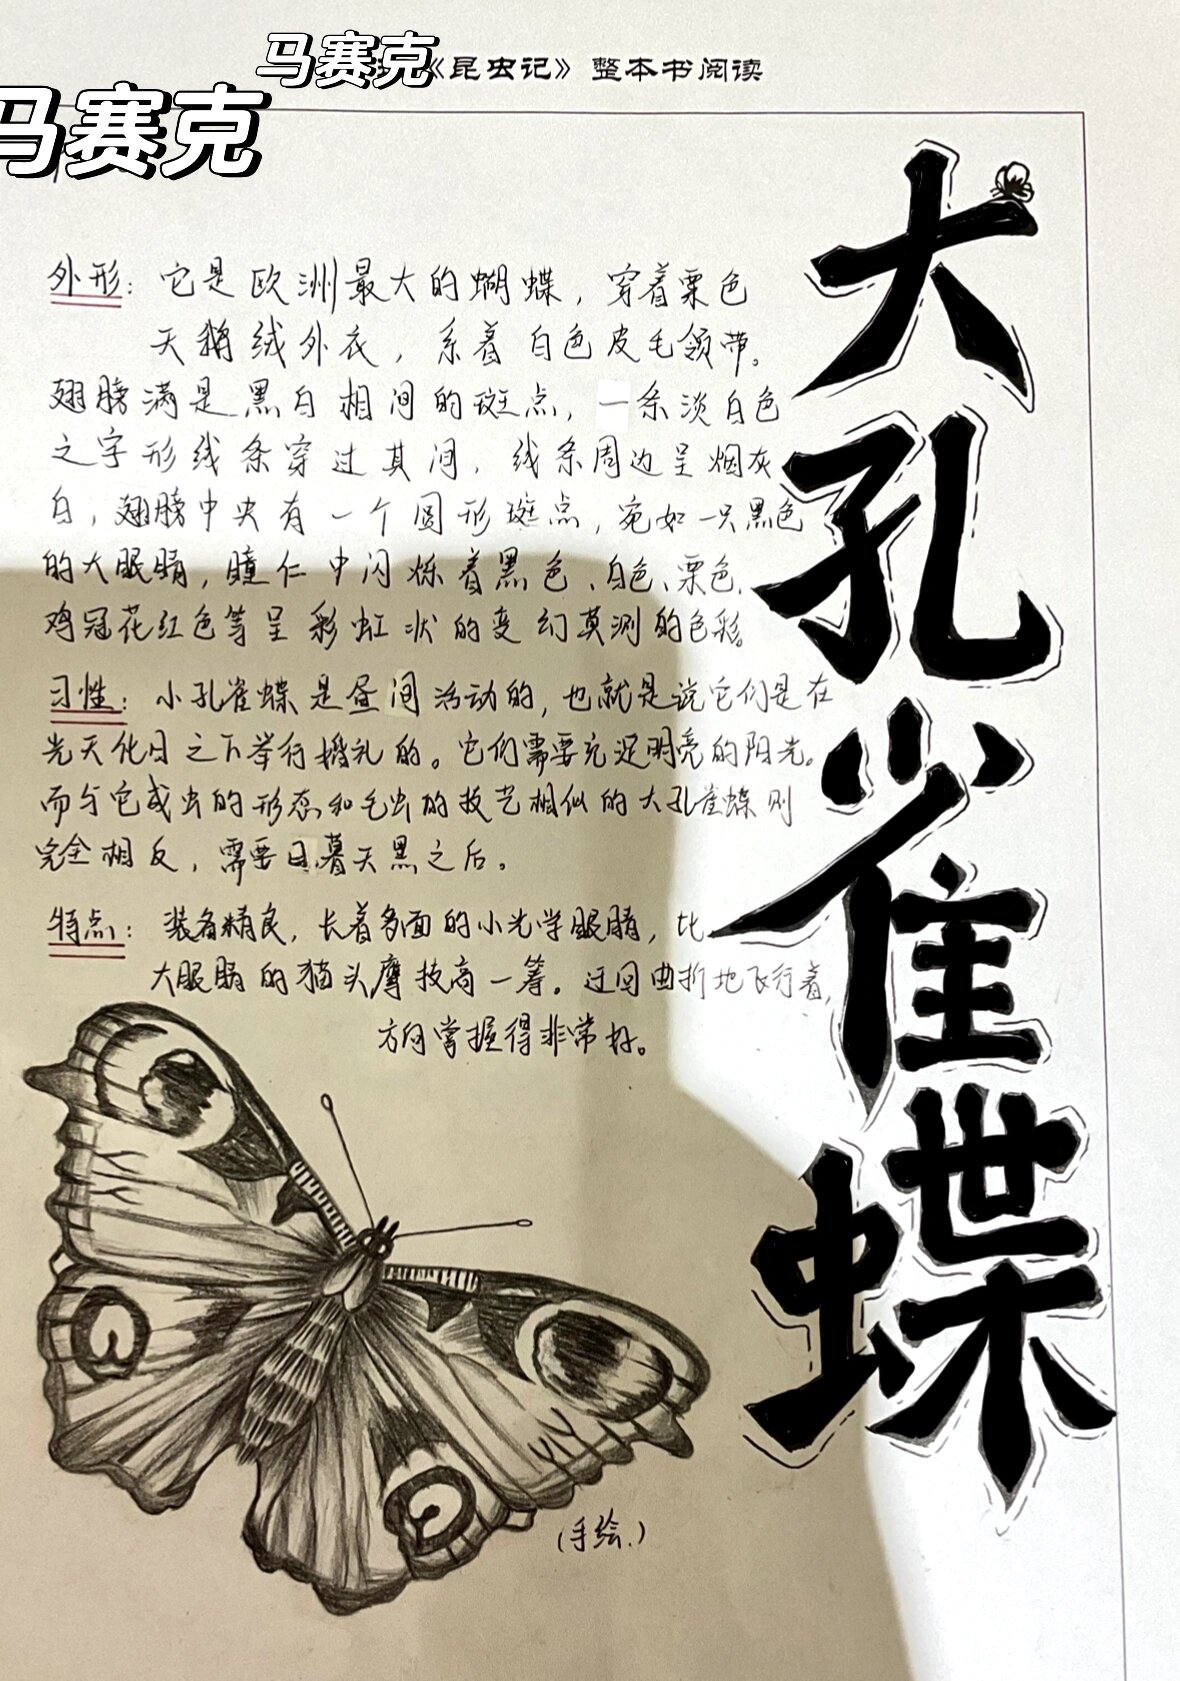 马赛克
《昆虫记》整本书阅读
马赛克
大孔雀蝶
外形：它是欧洲最大的蝴蝶，穿着栗色
天鹅绒外衣，系着白色皮毛领带。
翅膀满是黑白相间的斑点，一条淡白色
之字形线条穿过其间，线条周边呈烟灰
白，翅膀中央有一个圆形斑点，宛如一只黑色
的大眼睛，瞳仁中闪烁着黑色、白色、栗色、
鸡冠花红色等呈彩虹状的变幻莫测的色彩。
习性：小孔雀蝶是昼间活动的，也就是说它们是在
光天化日之下举行婚礼的。它们需要充足明亮的阳光。
而与它成虫的形态和毛虫的技艺相似的大孔雀蝶则
完全相反，需要日暮天黑之后。
特点：装备精良，长着多面的小光学眼睛，比
大眼睛的猫头鹰技高一筹。迂回曲折地飞行着，
方向掌握得非常好。
（手绘.）